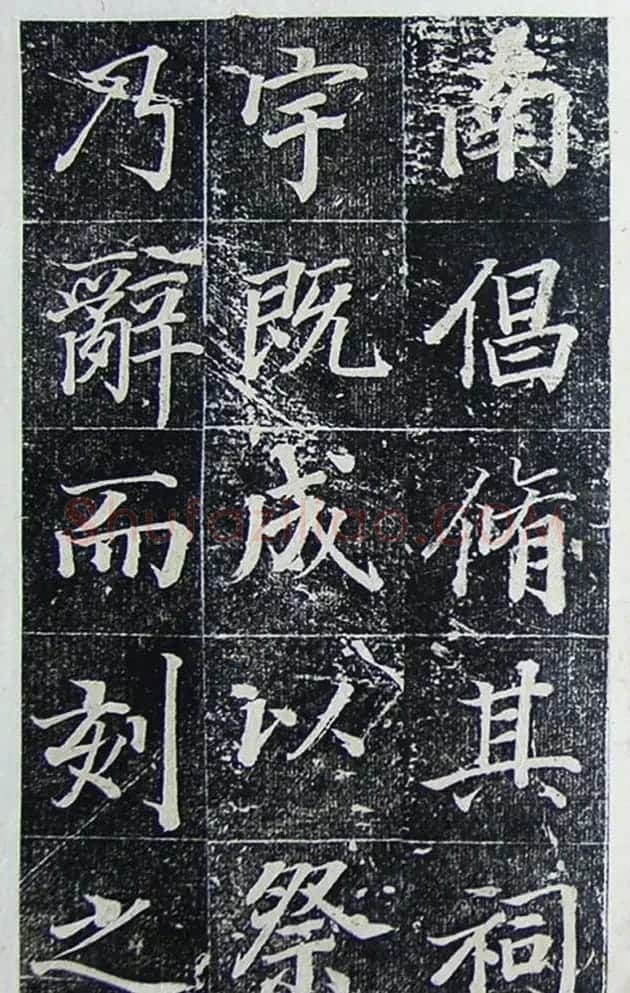 南倡脩其祠
宇既成以祭
乃辭而刻之
shufaziliao.com